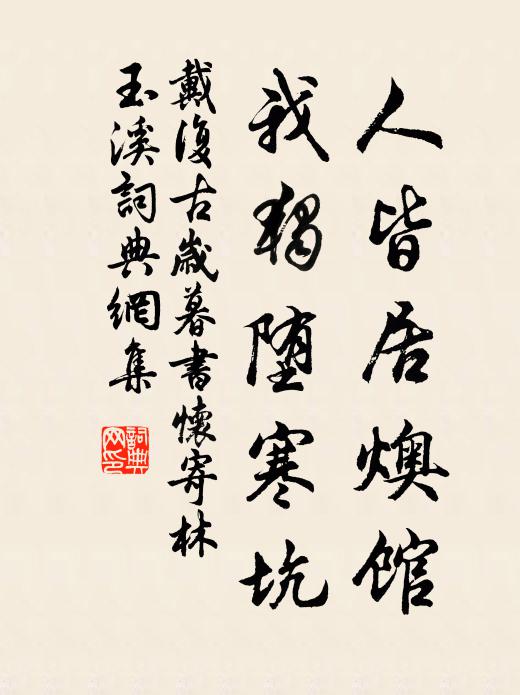 人皆居燠馆
我独堕寒坑
戴復古歲暮書懷寄林
玉溪詞典網集
詞典
网印